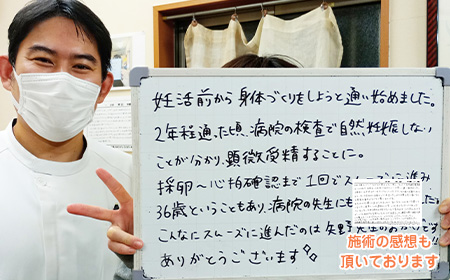 妊活前から身体づくりをしようと通い始めました。
2年程通った頃、病院の検査で自然妊娠しない
ことが分かり、顕微受精することに。
採卵〜心拍確認まで1回でスムーズに進み
36歳ということもあり、病院の先生にも
こんなにスムーズに進んだのは矢野先生のおかげです!!
ありがとうございます
施術の感想も
頂いております